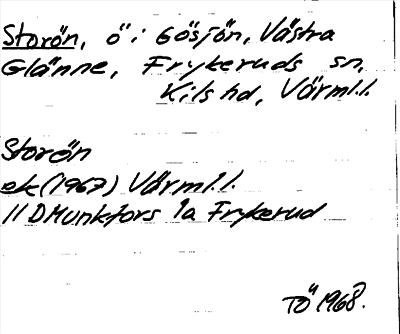 Storön, ö i Gösjön, Västra
Glänne, Frykeruds sn,
Kils hd, Värml.l.
Storön
ek (1967) Värml.l.
11 D Munkfors 1a Frykerud
TÖ 1968.